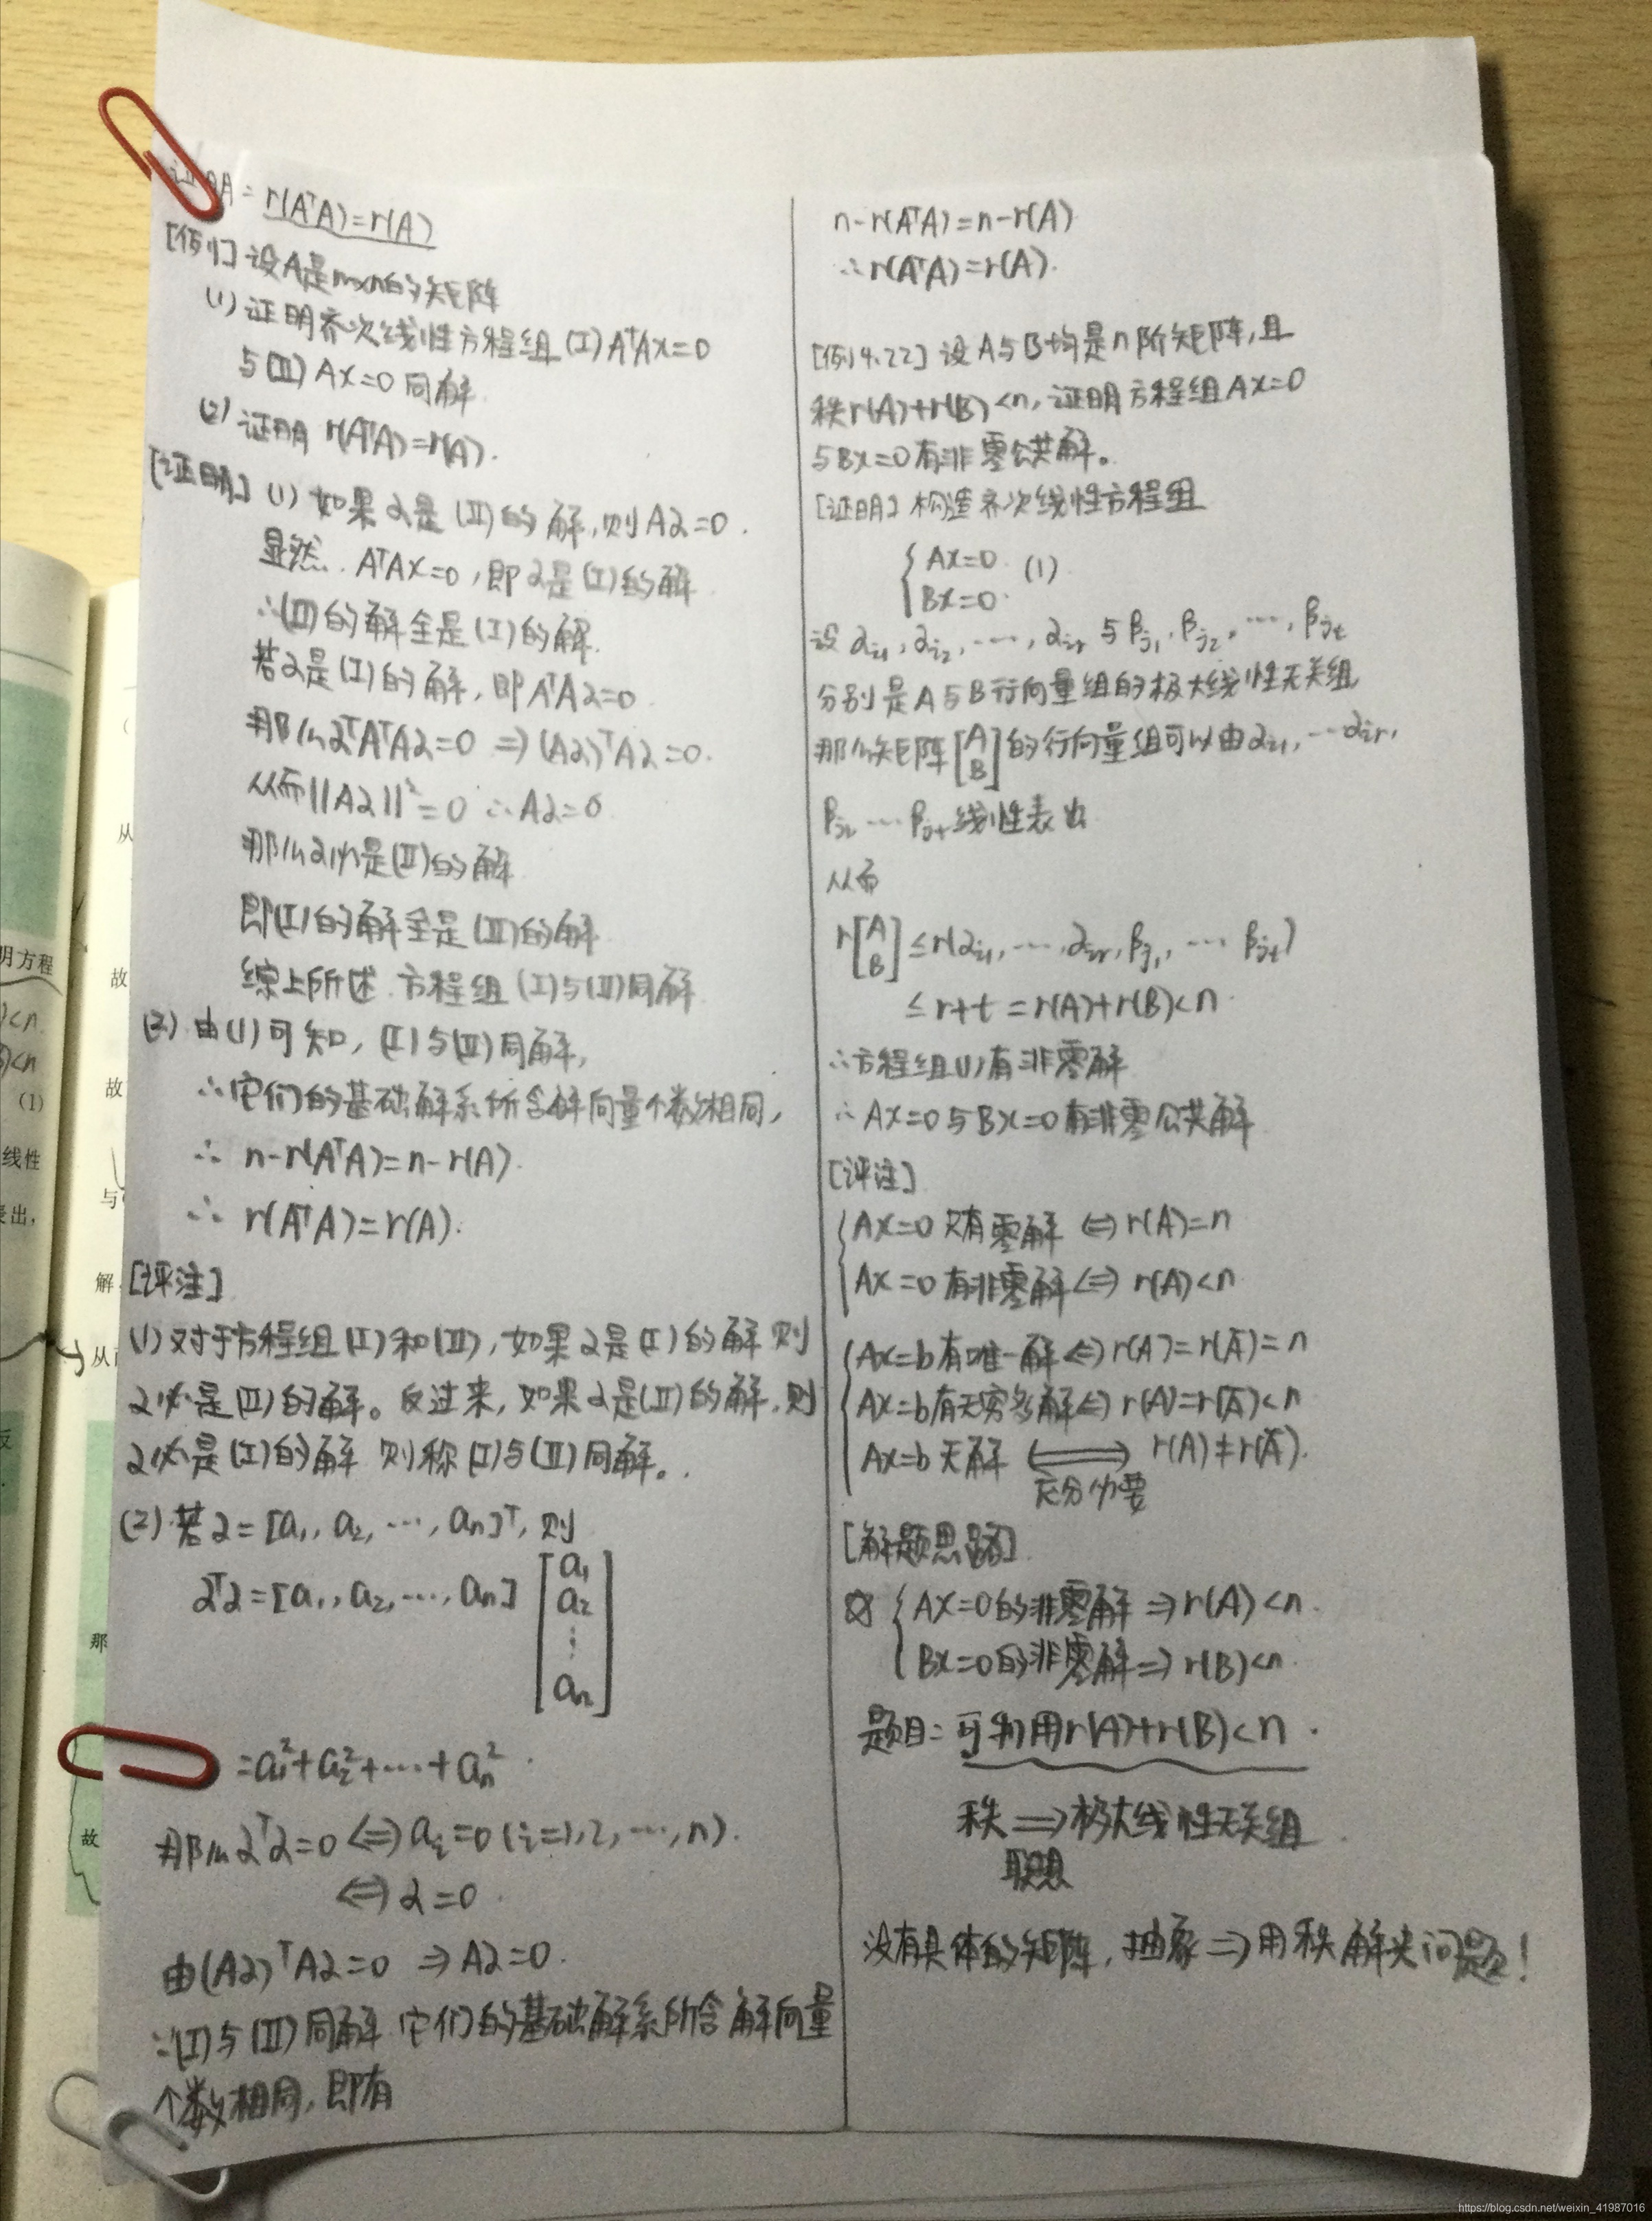 证明A = r(AᵀA)=r(A)
[例1] 设A是m×n的矩阵
(1) 证明齐次线性方程组 (I) AᵀAx=0
与(II) Ax=0 同解
(2) 证明 r(AᵀA)=r(A).
[证明] (1) 如果α是(II)的解,则Aα=0.
显然. AᵀAx=0,即α是(I)的解
∴(II)的解全是(I)的解.
若α是(I)的解,即AᵀAα=0
那么αᵀAᵀAα=0 ⇒ (Aα)ᵀAα=0.
从而||Aα||²=0 ∴Aα=0
那么α必是(II)的解
即(I)的解全是(II)的解
综上所述.方程组(I)与(II)同解
(2) 由(1)可知,(I)与(II)同解,
∴它们的基础解系所含解向量个数相同,
∴ n-r(AᵀA)=n-r(A).
∴ r(AᵀA)=r(A).
[评注]
(1) 对于方程组(I)和(II),如果α是(I)的解 则
α必是(II)的解。反过来,如果α是(II)的解,则
α必是(I)的解 则称(I)与(II)同解。
(2) 若α=[a₁, a₂, ⋯, aₙ]ᵀ, 则
αᵀα=[a₁, a₂, ⋯, aₙ] [a₁
a₂
⋮
aₙ]
=a₁²+a₂²+⋯+aₙ².
那么αᵀα=0 ⇔ aᵢ=0 (i=1,2,⋯,n).
⇔ α=0.
由(Aα)ᵀAα=0 ⇒ Aα=0.
∵(I)与(II)同解 它们的基础解系所含解向量
个数相同,即有
n-r(AᵀA)=n-r(A)
∴r(AᵀA)=r(A).
[例4.22] 设A与B均是n阶矩阵,且
秩r(A)+r(B)<n,证明方程组Ax=0
与Bx=0有非零公共解。
[证明] 构造齐次线性方程组
{ Ax=0 (1)
Bx=0
设αᵢ₁, αᵢ₂, ⋯, αᵢᵣ 与 βⱼ₁, βⱼ₂, ⋯, βⱼₜ
分别是A与B行向量组的极大线性无关组
那么矩阵[A B]的行向量组可以由αᵢ₁, ⋯αᵢᵣ,
βⱼ₁ ⋯ βⱼₜ 线性表出
从而
r[A B] ≤ r(αᵢ₁, ⋯, αᵢᵣ, βⱼ₁, ⋯ βⱼₜ)
≤ r+t = r(A)+r(B)<n.
∴方程组(1)有非零解
∴Ax=0与Bx=0有非零公共解
[评注]
Ax=0 只有零解 ⇔ r(A)=n
Ax=0 有非零解 ⇔ r(A)<n
Ax=b有唯一解 ⇔ r(A)=r(Ā)=n
Ax=b有无穷多解 ⇔ r(A)=r(Ā)<n
Ax=b 无解 ⟺ r(A)≠r(Ā).
充分必要
[解题思路]
{ Ax=0的非零解 ⇒ r(A)<n.
Bx=0的非零解 ⇒ r(B)<n.
题目: 可利用r(A)+r(B)<n.
秩 ⇒ 极大线性无关组
联想
没有具体的矩阵, 抽象 ⇒ 用秩解决问题!
明方程
<n
<n
(1)
线性
表出,
从
故
故
与
解
从而
那
故
https://blog.csdn.net/weixin_41987016